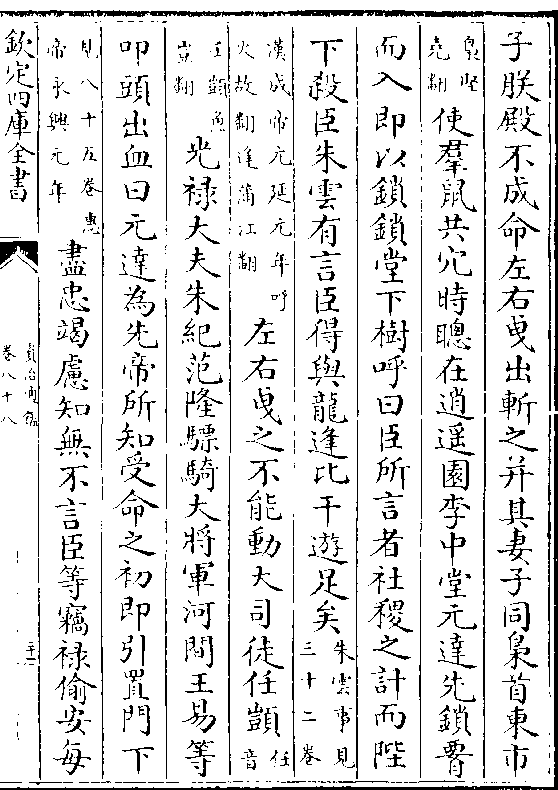 子朕殿不成命左右曳出斬之并其妻子同梟首東市
梟堅堯翻使羣鼠共穴時聰在逍遥園李中堂元達先鎖腰
而入即以鎖鎖堂下樹呼曰臣所言者社稷之計而陛
下殺臣朱雲有言臣得與龍逢比干遊足矣朱雲事見三十二卷
漢成帝元延元年呼火故翻逢蒲江翻左右曳之不能動大司徒任顗任音
壬顗魚豈翻光禄大夫朱紀范隆驃騎大將軍河間王易等
叩頭出血曰元達為先帝所知受命之初即引置門下
見八十五卷惠帝永興元年盡忠竭慮知無不言臣等竊禄偷安每
欽定四庫全書
資治通鑑
卷八十八